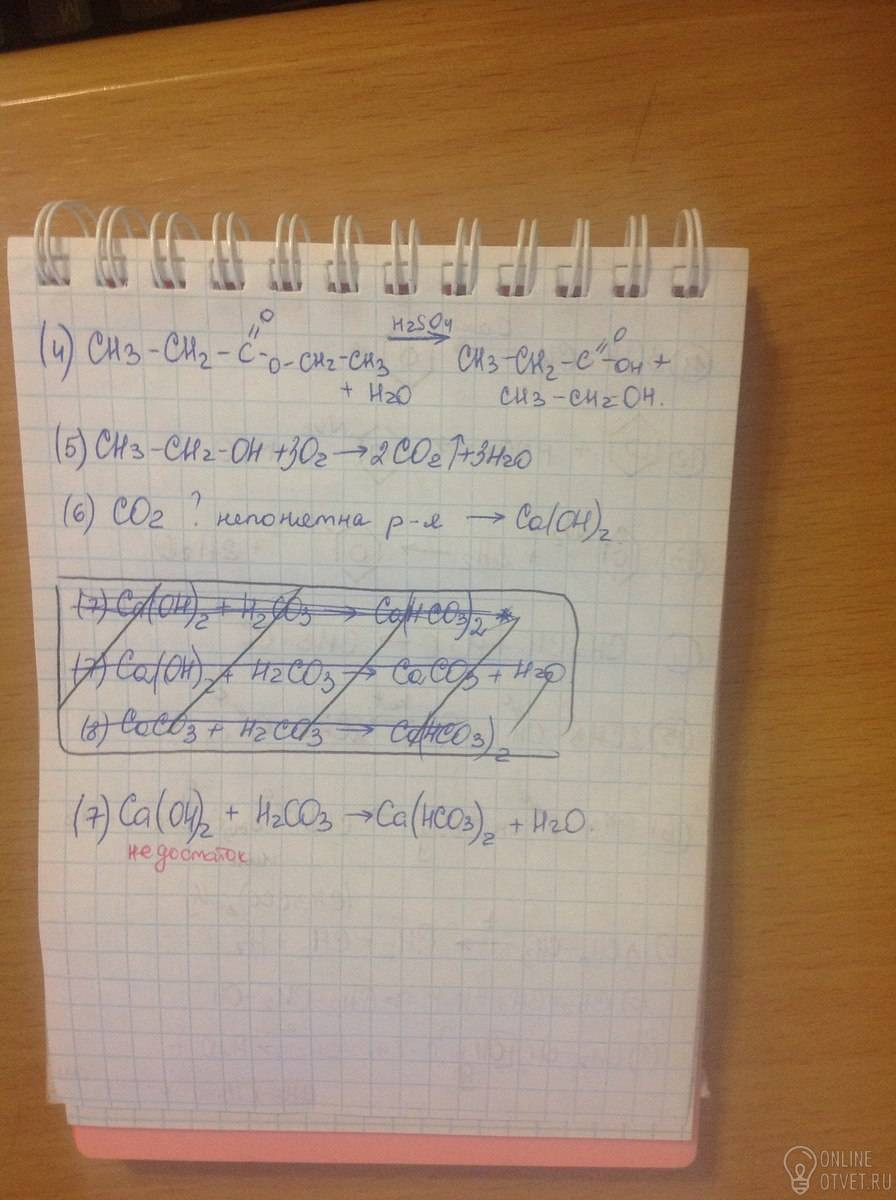 H2SO4
(4) CH3-CH2-C=O-O-CH2-CH3 + H2O → CH3-CH2-C=O-OH +
CH3-CH2-OH.
(5) CH3-CH2-OH +3O2 → 2CO2↑+3H2O
(6) CO2 ? непонятна р-я → Ca(OH)2
(7) Ca(OH)2 + H2CO3 → Ca(HCO3)2
(7) Ca(OH)2 + H2CO3 → CaCO3 + H2O
(8) CaCO3 + H2CO3 → Ca(HCO3)2
(7) Ca(OH)2 + H2CO3 → Ca(HCO3)2 + H2O.
недостаток
ONLINE
OTVET.RU